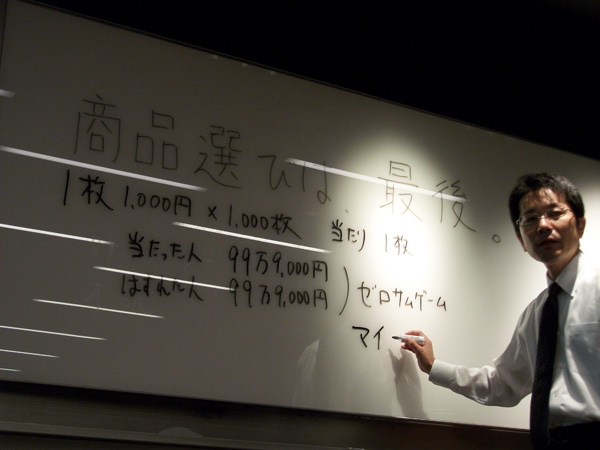 商品選びは、最後。
1枚 1,000円 × 1,000枚 当たり 1枚
当たった人 99万9,000円
はずれた人 99万9,000円 ) ゼロサムゲーム
マイー